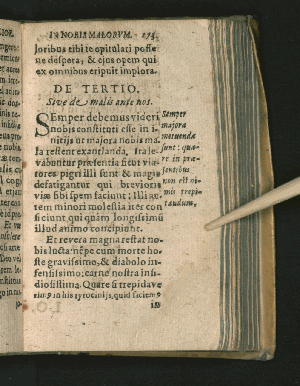 IN NOBIS MALORUM. 174
loribus tibi te opitulari posse
ne despera; & ejus opem qui
ex omnibus eripuit implora.
DE TERTIO.
Sive de malis ante nos.
SEmper debemus videri
nobis constituti esse in i-
nitijs ut majora nobis ma-
la restent exantlanda, it a le-
vabuntur præsentia sicut via-
tores pigri illi sunt & magis
defatigantur qui brevioris
viæ sibi spem faciunt; Illi au-
tem minori molestia iter con
ficiunt qui quàm longissimũ
illud animo concipiunt.
Et revera magna restat no-
bis lucta nẽpe cum morte ho-
ste gravissimo, & diabolo in-
fensissimo; carne nostra insi-
diosissima. Quare si trepidave
rimꝰ in his tyrocinijs, quid faciemꝰ
in
Semper
majora
metuenda
sunt: qua-
re in præ-
sentibus
non est ni-
mis trepi-
dandum.